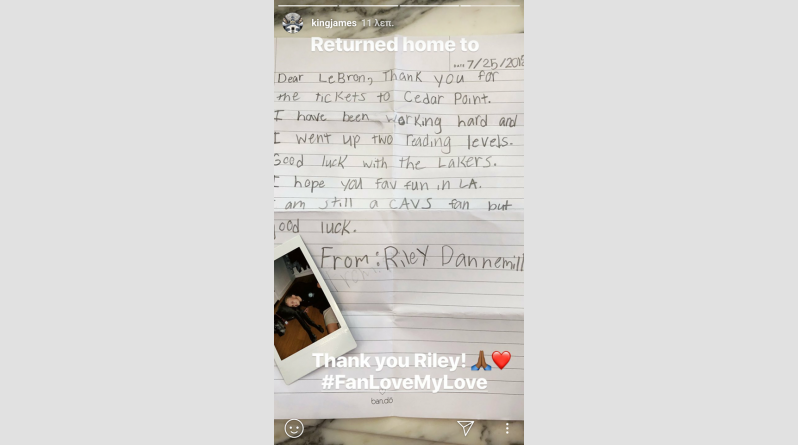 kingjames 11 λεπ.
Returned home to
DATE 7/25/2018
Dear LeBron, Thank you for
the tickets to Cedar Point.
I have been working hard and
I went up two reading levels.
Good luck with the Lakers.
I hope you fav fun in LA.
I am still a CAVS fan but
good luck.
From: Riley Dannemill
Thank you Riley! 🙏🏾❤️
#FanLoveMyLove
ban.dō